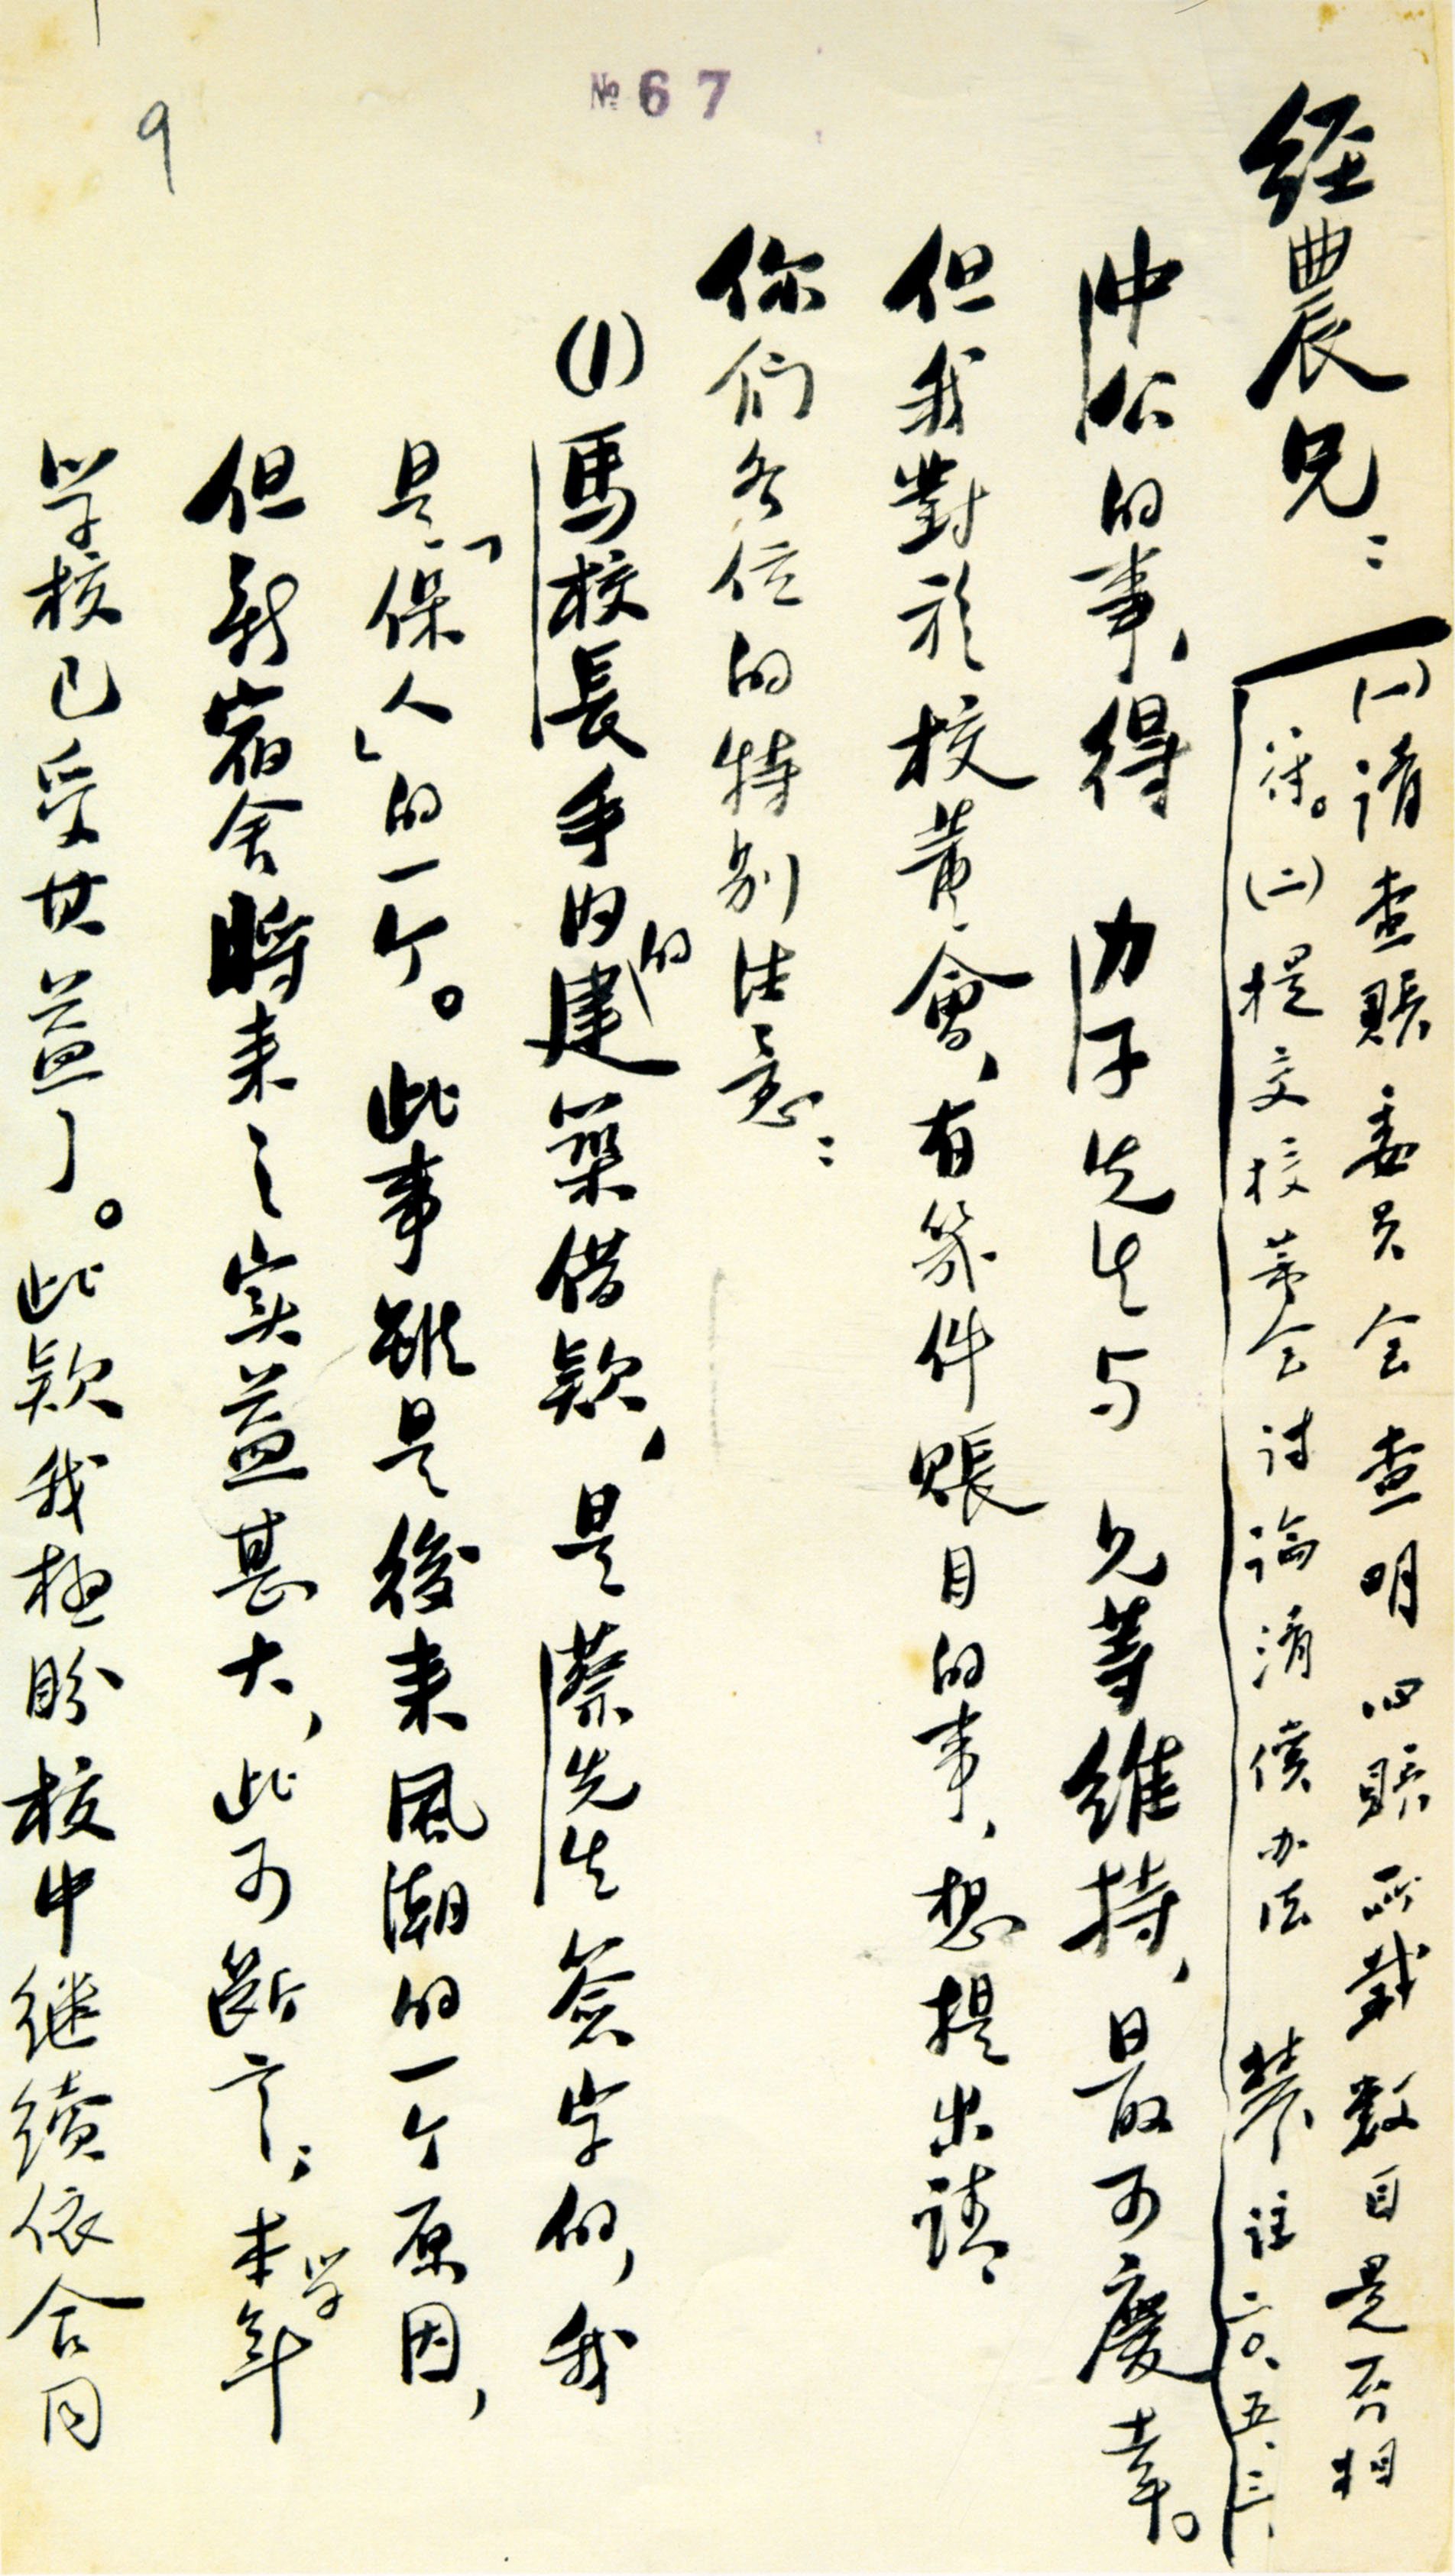 № 67
9
經農兄：
(一)請查賬委員会查明此賬所載數目是否相
符。(二)提交校董会討論清償办法 註二〇、五、三、
中公的事，得 力子先生与 兄等維持，最可慶幸。
但我對於校董會，有幾件賬目的事，想提出請
你们各位的特别注意：
(1)馬校長手内的建築借款，是蔡先生簽字的，我
是「保人」的一个。此事雖是後来風潮的一个原因，
但新宿舍將来之实益甚大，此可断言；本学年
学校已受其益了。此款我極盼校中继續依合同